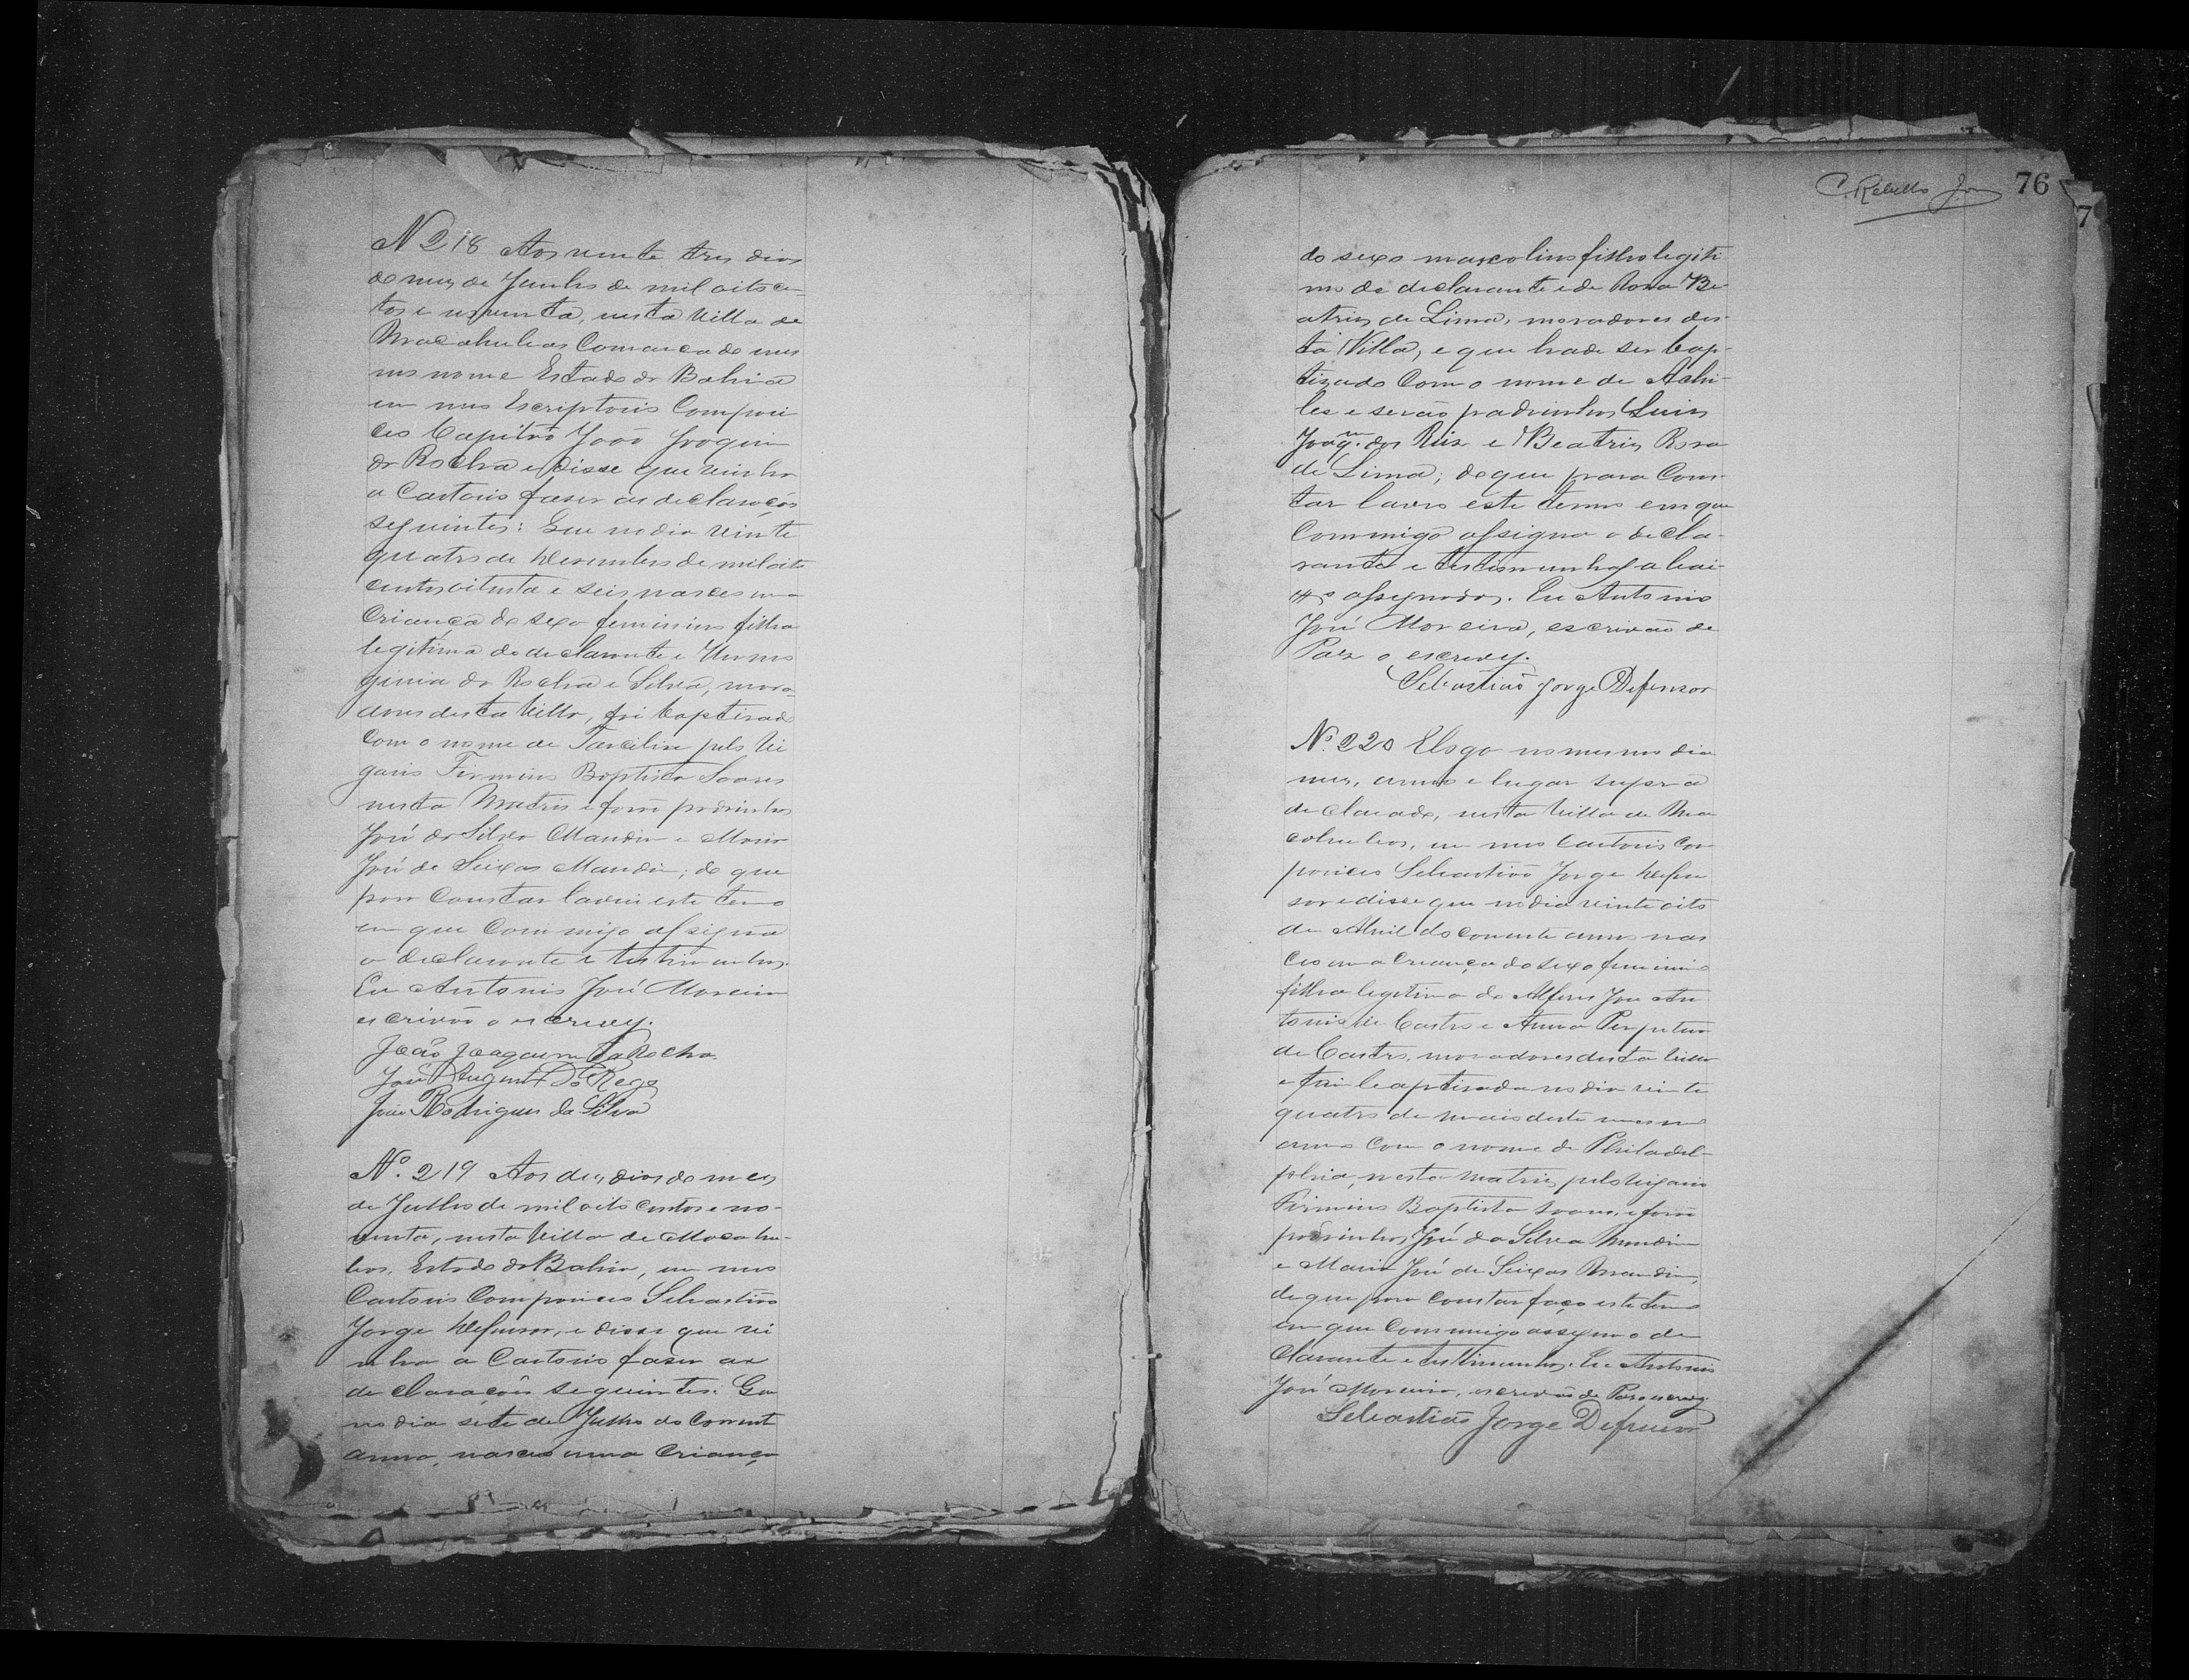 N 218 Aos vinte tres dias
do mez de Junho de mil oitocen-
tos e noventa, nesta Villa de
Macahubas Comarca do mes
mo nome Estado da Bahia
em meo Escriptorio Compari
ceo Capitão João Joaquim
da Rocha e disse que vinha
a Cartorio faser as declaracões
seguintes: Que no dia vinte
quatro de Desembro de mil oito
centos oitenta e seis nasceo uma
Criança do sexo feminino filha
legitima do declarante e Hermo
ginia da Rocha e Silva, mora-
dores desta Villa, foi baptisada
com o nome de Tarcilia pelo Vi
gario Firmino Baptista Soares
nesta Matriz e forão padrinhos
José da Silva Mandim e Maria
José de Seixas Mandim; do que
para constar lavrei este termo
em que commigo assigna
o declarante e testimunhas.
Eu Antonio José Moreira
escrivão o escrevy.
João Joaquim da Rocha
José Augusto do Rego
João Rodrigues da Silva
Nº. 219 Aos dez dias do mez
de Julho de mil oito centos e no-
venta, nesta Villa de Macahu-
bas, Estado da Bahia, em meo
Cartorio Compariceo Sebastião
Jorge Defensor, e disse que vi
nha a Cartorio faser as
declaracões seguintes: Que
no dia sete de Julho do Corrente
anno, nasceo uma Criança
C. Rebello Jor 76
7
do sexo masculino filho legiti
mo do declarante e de Rosa Be-
atriz de Lima, moradores des-
ta Villa, e que hade ser bap-
tizado Com o nome de Achi-
les e serão padrinhos Luis
Joaqm. dos Reis e Beatriz Rosa
de Lima; do que para Cons-
tar lavro este termo em que
Commigo assigna o decla-
rante e testemunhas abai-
xo assignados. Eu Antonio
José Moreira, escrivão de
Paz o escrevy.
Sebastião Jorge Defensor
Nº. 220 E logo no mesmo dia
mez, anno e lugar supra
declarado, nesta Villa de Ma
cahubas, em meo Cartorio Com
pariceo Sebastião Jorge Defen
sor e disse que no dia vinte oito
de Abril do corrente anno nas
ceo uma Criança do sexo feminino
filha legitima do Alferes José An
tonio de Castro e Anna Perpetua
de Castro, moradores desta Villa
e foi baptisada no dia vinte
quatro de maio deste mesmo
anno Com o nome de Philadel-
phia, nesta matriz pelo Vigario
Firmino Baptista Soares e forão
padrinhos José da Silva Mandim
e Maria José de Seixas Mandim,
do que para constar faço este termo
em que Commigo assigna o de
clarante e testimunhas. Eu Antonio
José Moreira, escrivão de Paz o escrevy.
Sebastião Jorge Defensor